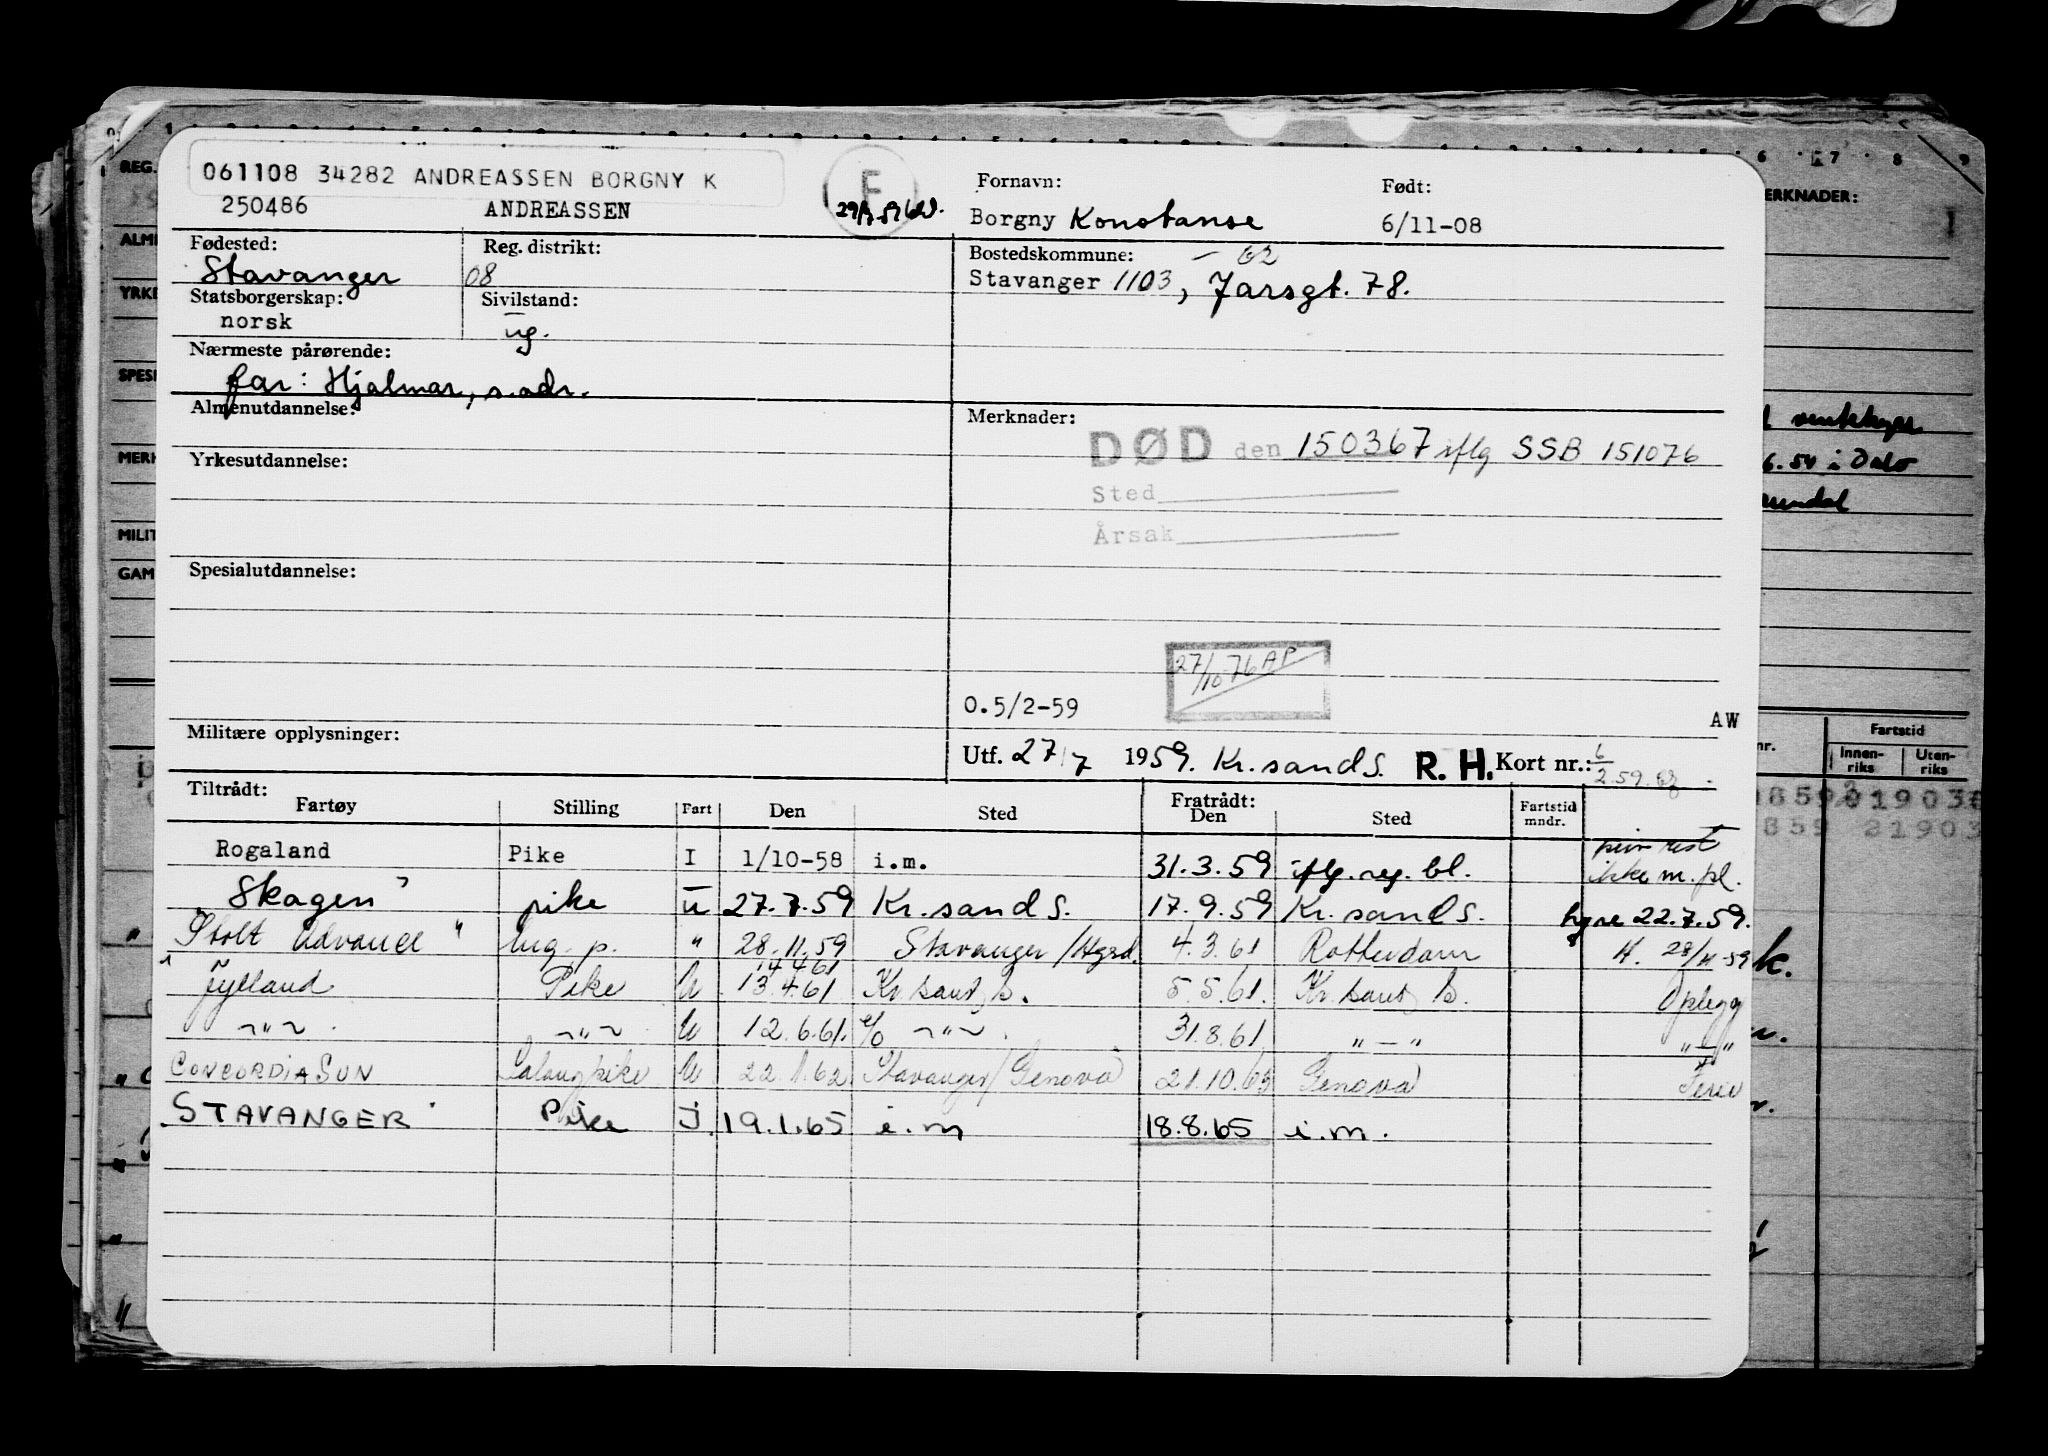 061108 34282 ANDREASSEN BORGNY K
F
250486 ANDREASSEN
Fornavn: Født:
Borgny Konstanse 6/11-08
Fødested: Reg. distrikt:
Stavanger 08
Bostedskommune: - 62
Stavanger 1103, Jarsgt. 78.
Statsborgerskap: Sivilstand:
norsk ug.
Nærmeste pårørende:
far: Hjalmar, s. adr.
Almenutdannelse:
Merknader:
DØD den 150367 iflg SSB 151076
Sted
Årsak
Yrkesutdannelse:
Spesialutdannelse:
27/10-76 AP
0.5/2-59
AW
Militære opplysninger:
Utf. 27/7 1959. Kr.sand S. R. H. Kort nr.: 6/2.59.
Tiltrådt: Fratrådt:
Fartøy Stilling Fart Den Sted Den Sted Fartstid mndr.
Rogaland Pike I 1/10-58 i.m. 31.3.59 iflg. reg. bl. ikke m. pl.
Skagen" pike u 27.7.59 Kr.sand S. 17.9.59 Kr.sand S. hyre 22.7.59.
Stolt Advance " lug. p. " 28.11.59 Stavanger/Hgsd. 4.3.61 Rotterdam H. 28/11-59
14.4.61
Jylland Pike U 13.4.61 Kr.sand S. 5.5.61. Kr.sand S. Oplegg
~"~ ~"~ U 12.6.61. e/o ~"~ 31.8.61 "-" "-"
CONCORDIA SUN Salongpike U 22.1.62 Stavanger/Genova 21.10.63 Genova Ferie
STAVANGER Pike J. 19.1.65 i.m 18.8.65 i.m.
REG.
ALM
YRKE
SPESI
MERK
MILIT
GAM
ERKNADER:
6.54 i Oslo
Fartstid
nr. Innen-riks Uten-riks